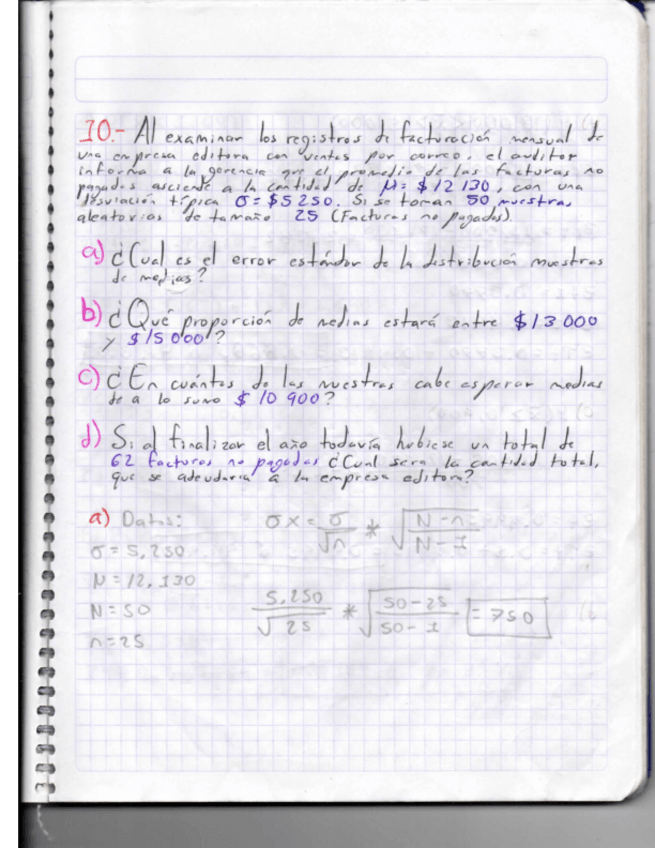 10.- Al examinar los registros de facturación mensual de
una empresa editora con ventas por correo, el auditor
informa a la gerencia que el promedio de las facturas no
pagadas asciende a la cantidad de μ= $12 130, con una
desviación típica σ= $5 250. Si se toman 50 muestras
aleatorias de tamaño 25 (Facturas no pagadas)
a) ¿Cual es el error estándar de la distribución muestras
de medias?
b) ¿Qué proporción de medias estará entre $13 000
y $15 000?
c) ¿En cuántas de las muestras cabe esperar medias
de a lo sumo $10 900?
d) Si al finalizar el año todavía hubiese un total de
62 facturas no pagadas ¿Cual sera la cantidad total,
que se adeudaria a la empresa editora?
a) Datos: σx = σ/√n * √(N-n/N-1)
σ = 5,250
μ = 12,130
N = 50 5,250/√25 * √(50-25/50-1) = 750
n = 25